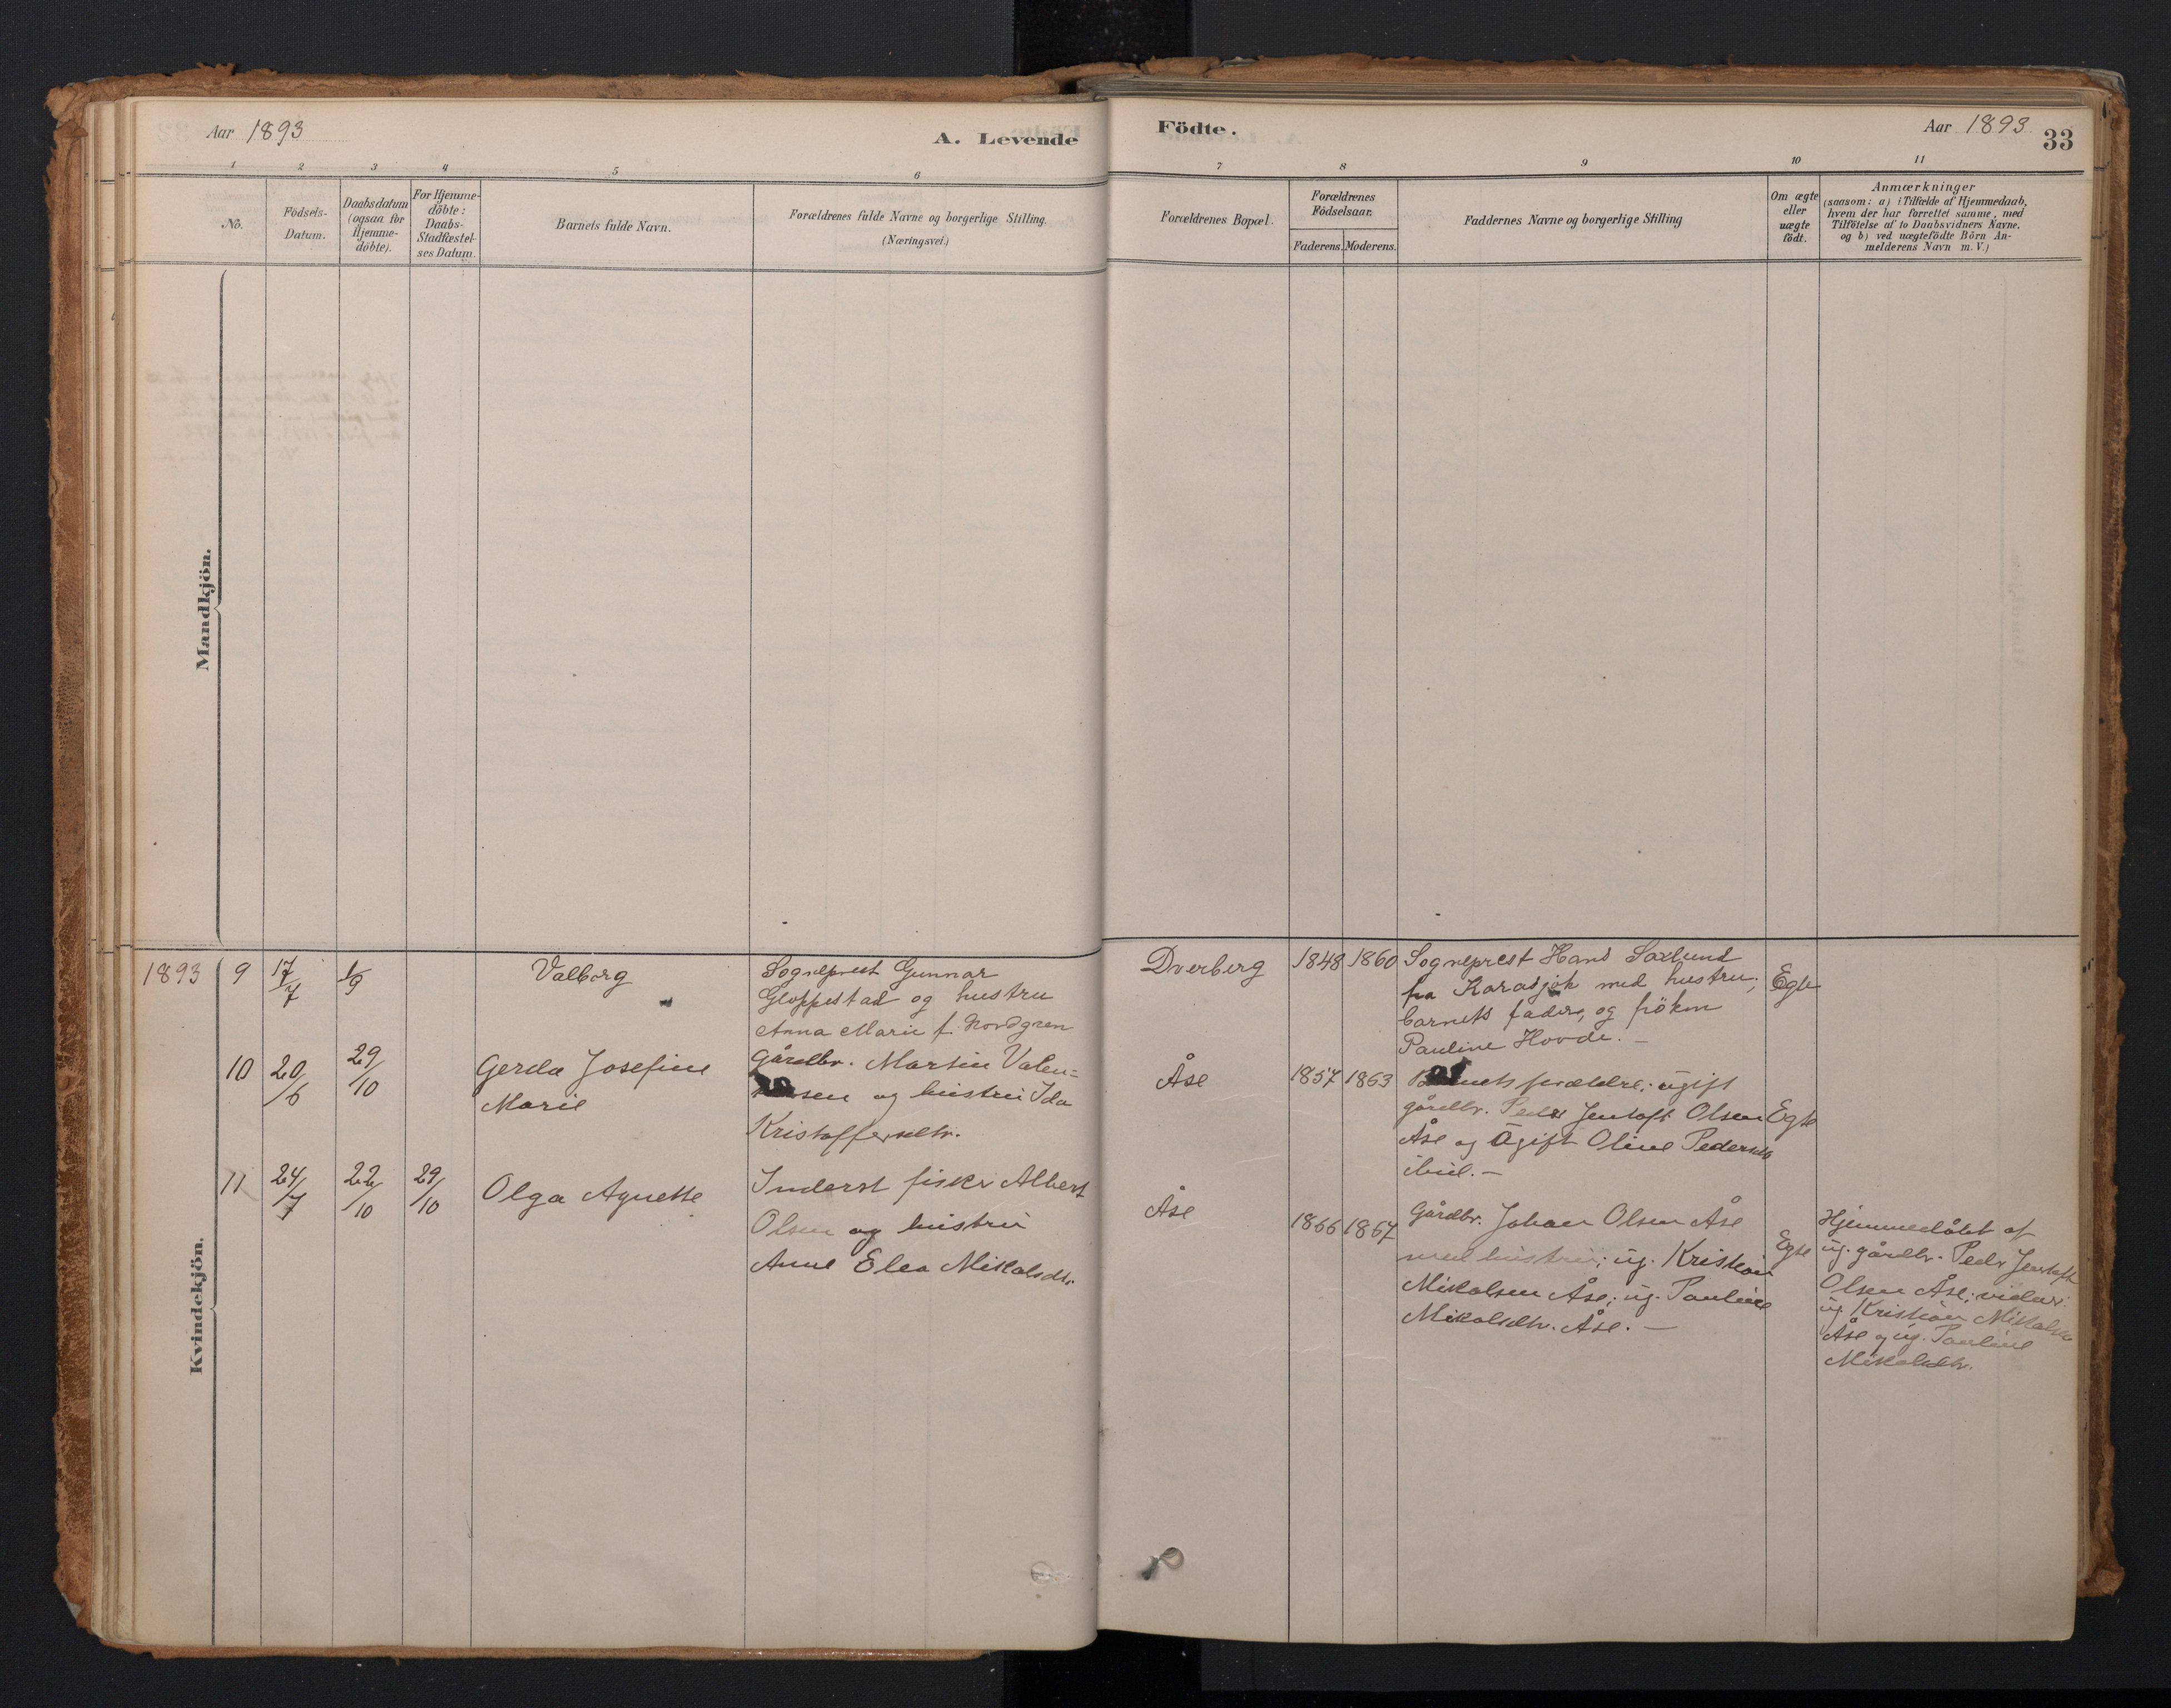 Aar 1893
A. Levende
Födte.
Aar 1893
33
1
2
3
4
5
6
7
8
9
10
11
No.
Födsels-
Datum.
Daabsdatum
(ogsaa for
Hjemme-
döbte).
For Hjemme-
döbte:
Daabs-
Stadfæstel-
ses Datum.
Barnets fulde Navn.
Forældrenes fulde Navne og borgerlige Stilling.
(Næringsvei.)
Forældrenes Bopæl.
Forældrenes
Födselsaar.
Faderens.
Moderens.
Faddernes Navne og borgerlige Stilling
Om ægte
eller
uægte
födt.
Anmærkninger
(saasom: a) i Tilfælde af Hjemmedaab,
hvem der har forrettet samme, med
Tilföielse af to Daabsvidners Navne.
og b) ved uægtefödte Börn An-
melderens Navn m. V.)
Mandkjön.
Kvindekjön.
1893
9
17/7
1/9
Valborg
Sogneprest Gunnar
Gloppestad og hustru
Anna Marie f. Nordgren
Dverberg
1848
1860
Sogneprest Hans Saxlund
fra Karasjok med hustru;
barnets fader, og frøken
Pauline Hovde. —
Egte
10
20/6
29/10
Gerda Josefine
Marie
Gårdbr. Martin Valen=
sen og hustru Ida
Kristoffersdtr.
Åse
1857
1863
forældre; ugift
gårdbr. Peder Jentoft Olsen
Åse og ugift Oline Pedersdtr
ibid. —
Egte
11
24/7
22/10
29/10
Olga Agnette
Inderst fisker Albert
Olsen og hustru
Anne Elea Mikalsdtr.
Åse
1866
1867
Gårdbr. Johan Olsen Åse
med hustru; ug. Kristian
Mikalsen Åse; ug. Pauline
Mikalsdtr. Åse. —
Egte
Hjemmedøbt af
ug. gårdbr. Peder Jentoft
Olsen Åse; vidner:
ug. Kristian Mikalsen
Åse og ug. Pauline
Mikalsdtr.